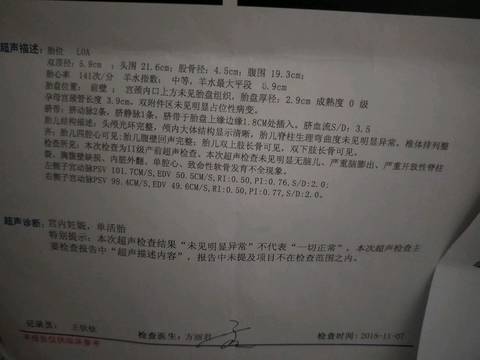 超声描述：胎位 LOA
双顶径：5.8cm ；头围 21.6cm；股骨径：4.5cm；腹围 19.3cm；
胎心率 141次/分 羊水指数： 中等，羊水最大平段 5.9cm
胎盘位置： 前壁 ；宫颈内口上方未见胎盘组织，胎盘厚径：2.9cm 成熟度 0 级
孕母宫颈管长度 3.9cm，双附件区未见明显占位性病变。
脐带：脐动脉2条，脐静脉1条；脐带于胎盘上缘边缘1.8CM处插入。脐血流S/D：3.5
胎儿结构描述：头颅光环完整，颅内大体结构显示清晰，胎儿脊柱生理弯曲度未见明显异常，椎体排列整
齐；胎儿四腔心可见；胎儿腹壁回声完整；胎儿双上肢长骨可见，双下肢长骨可见。
检查所见：本次检查为II级产前超声检查。本次超声检查未见明显无脑儿、严重脑膨出、严重开放性脊柱
裂、胸腹壁缺损、内脏外翻、单腔心、致命性软骨发育不全现象。
右侧子宫动脉PSV 101.7CM/S,EDV 50.5CM/S,RI:0.50,PI:0.76,S/D:2.0；
左侧子宫动脉PSV 98.4CM/S,EDV 49.6CM/S,RI:0.50,PI:0.77,S/D:2.0。
超声诊断：宫内妊娠，单活胎
特别提示：本次超声检查结果“未见明显异常”不代表“一切正常”，本次超声检查主
要检查报告中“超声描述内容”，报告中未提及项目不在检查范围之内。
记录员： 王钦钦 检查医生：方丽君 检查时间:2018-11-07
本报告仅供临床参考